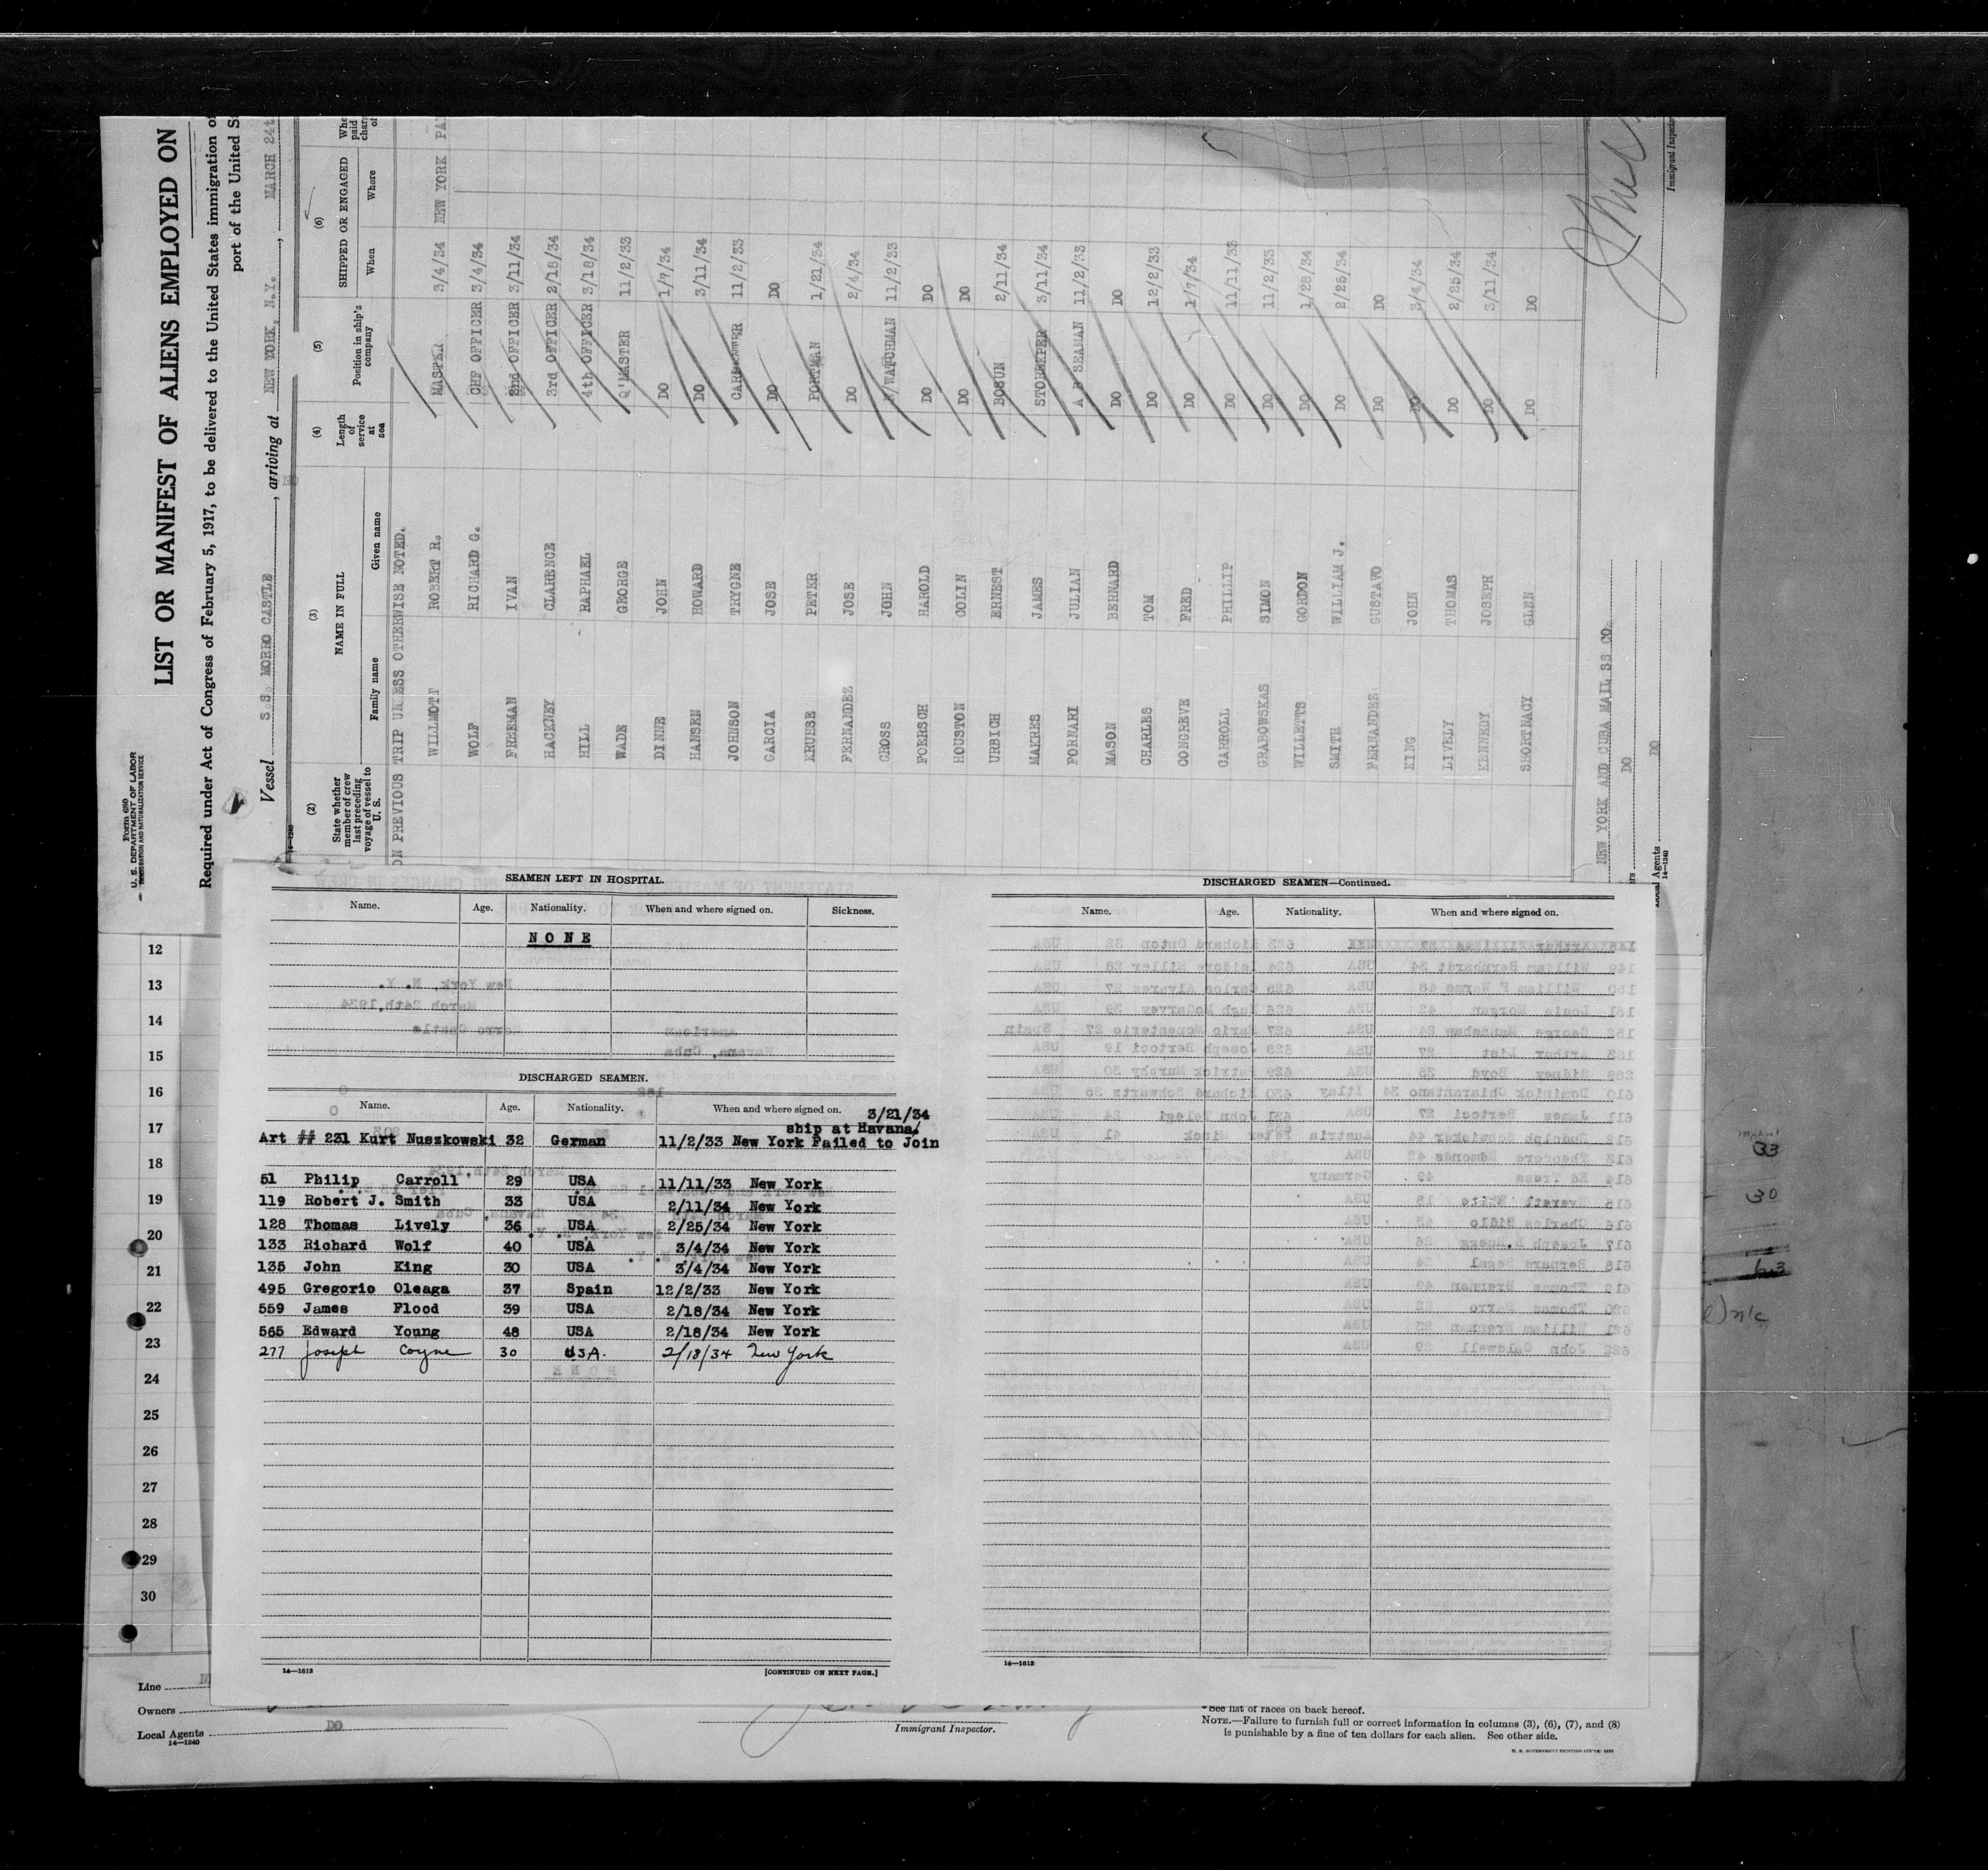 Form 680
U. S. DEPARTMENT OF LABOR
IMMIGRATION AND NATURALIZATION SERVICE
LIST OR MANIFEST OF ALIENS EMPLOYED ON
Required under Act of Congress of February 5, 1917, to be delivered to the United States immigration
port of the United
Vessel S.S. MORRO CASTLE, arriving at NEW YORK, N.Y., MARCH 24t
(2) (3) (4) (5) (6)
State whether member of crew last preceding voyage of vessel to U. S. NAME IN FULL Length of service at sea Position in ship's company SHIPPED OR ENGAGED
Family name Given name When Where
ON PREVIOUS TRIP UNLESS OTHERWISE NOTED.
WILLMOTT ROBERT R. MASTER 3/4/34 NEW YORK
WOLF RICHARD G. CHF OFFICER 3/4/34
FREEMAN IVAN 2nd OFFICER 3/11/34
HACKNEY CLARENCE 3rd OFFICER 2/18/34
HILL RAPHAEL 4th OFFICER 3/18/34
WADE GEORGE Q'MASTER 11/2/33
DINNE JOHN DO 1/7/34
HANSEN HOWARD DO 3/11/34
JOHNSON TRYGNE CARPENTER 11/2/33
GARCIA JOSE DO DO
KRUESE PETER PORTMAN 1/21/34
FERNANDEZ JOSE DO 2/4/34
GROSS JOHN N/WATCHMAN 11/2/33
FOERSCH HAROLD DO DO
HOUSTON COLIN DO DO
URBICH ERNEST BOSUN 2/11/34
MAKRES JAMES STOREKPER 3/11/34
FORNARI JULIAN A B SEAMAN 11/2/33
MASON BERNARD DO DO
CHARLES TOM DO 12/2/33
CONGREVE FRED DO 1/7/34
CARROLL PHILLIP DO 11/11/33
GRABOWSKAS SIMON DO 11/2/33
WILLETTS GORDON DO 1/28/34
SMITH WILLIAM J. DO 2/25/34
FERNANDEZ GUSTAVO DO DO
KING JOHN DO 3/4/34
LIVELY THOMAS DO 2/25/34
KENNEDY JOSEPH DO 3/11/34
SHORTMACY GLEN DO DO
NEW YORK AND CUBA MAIL SS CO.
DO
Agents DO
14—1240
Immigrant Inspector
SEAMEN LEFT IN HOSPITAL.
Name. Age. Nationality. When and where signed on. Sickness.
NONE
DISCHARGED SEAMEN.
Name. Age. Nationality. When and where signed on.
3/21/34
ship at Havana/
Art ## 231 Kurt Nuszkowski 32 German 11/2/33 New York Failed to Join
51 Philip Carroll 29 USA 11/11/33 New York
119 Robert J. Smith 33 USA 2/11/34 New York
128 Thomas Lively 36 USA 2/25/34 New York
133 Richard Wolf 40 USA 3/4/34 New York
135 John King 30 USA 3/4/34 New York
495 Gregorio Oleaga 37 Spain 12/2/33 New York
559 James Flood 39 USA 2/18/34 New York
565 Edward Young 48 USA 2/18/34 New York
277 Joseph Coyne 30 USA. 2/18/34 New York
14—1613
[CONTINUED ON NEXT PAGE.]
DISCHARGED SEAMEN—Continued.
Name. Age. Nationality. When and where signed on.
14—1613
12
13
14
15
16
17
18
19
20
21
22
23
24
25
26
27
28
29
30
33
30
63
Line
Owners
Local Agents DO
14—1240
Immigrant Inspector.
*See list of races on back hereof.
NOTE.—Failure to furnish full or correct information in columns (3), (6), (7), and (8)
is punishable by a fine of ten dollars for each alien. See other side.
U. S. GOVERNMENT PRINTING OFFICE